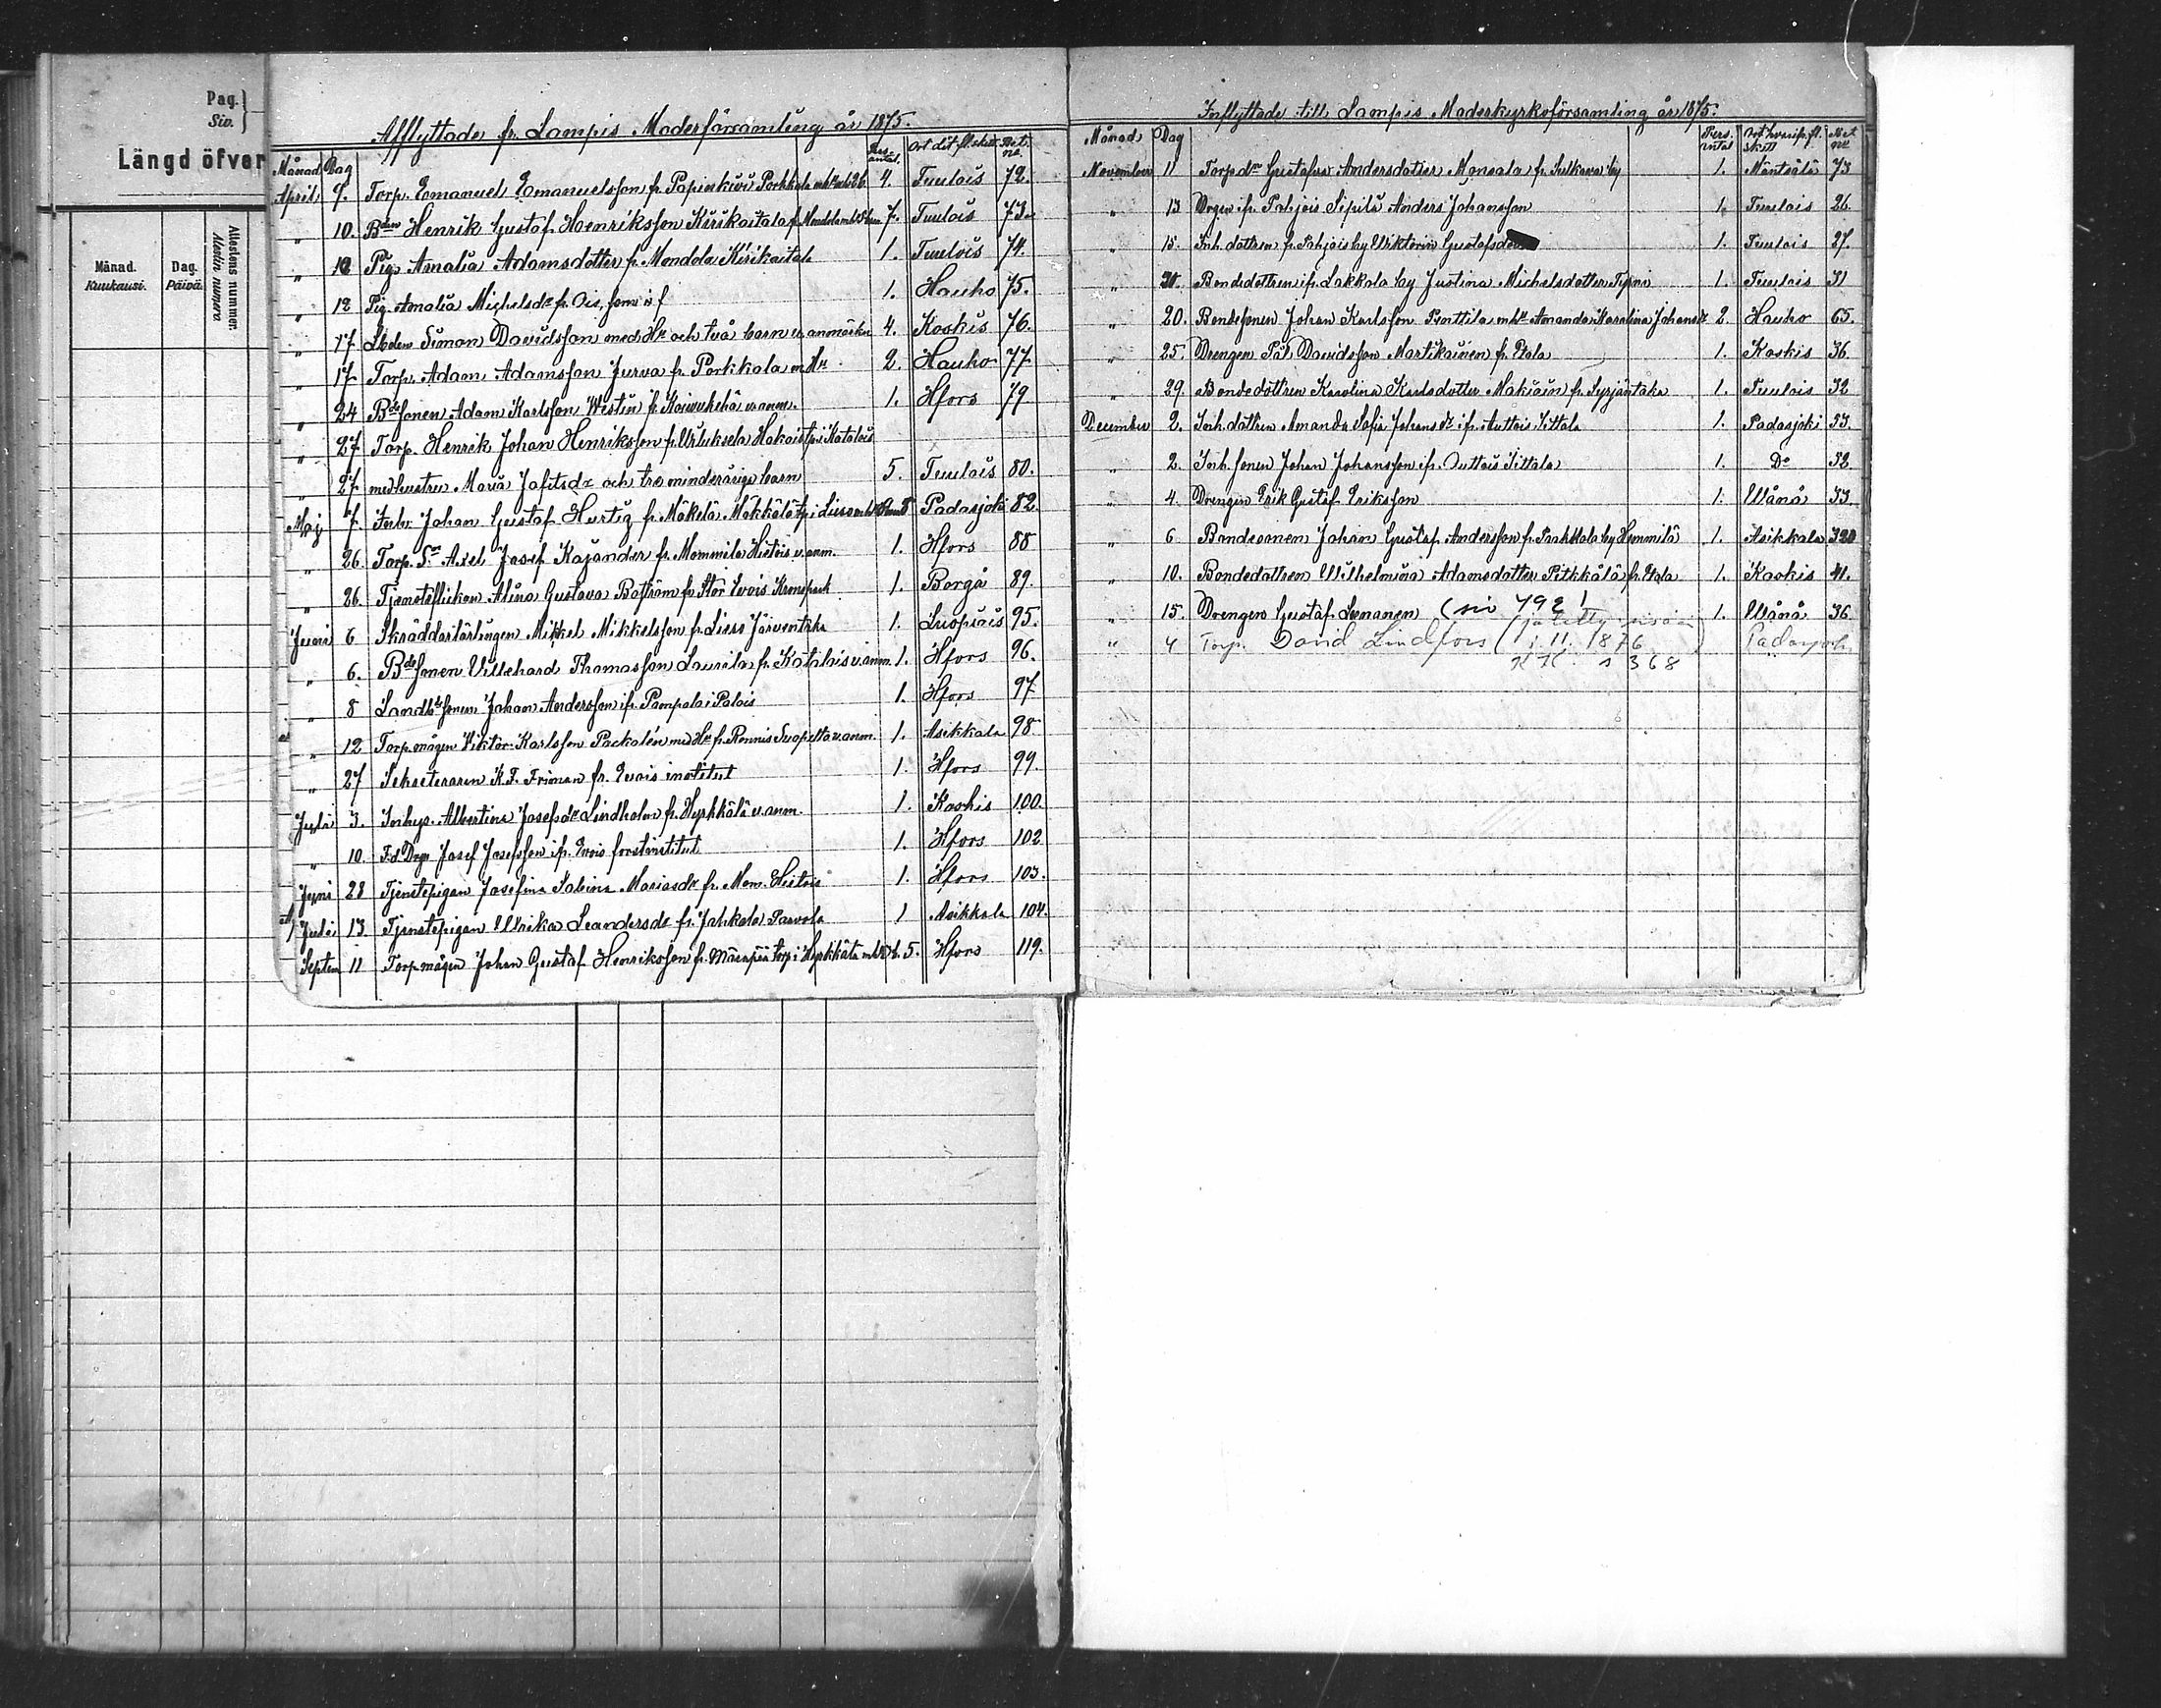 Pag.
Siv.
Längd öfver
Månad.
Kuukausi.
Dag.
Päivä.
Attestens nummer.
Attestin numero
Afflyttade fr. Lampis Moderförsamling år 1875.
Månad Dag Pers. antal. Ort dit fl. skett Bet. no.
April 9. Torp. Emanuel Emanuelsson fr. Papinkivi Porkkala 4. Tuulois 72.
" 10. Bden Henrik Gustaf Henriksson Kirikaitala fr. 7. Tuulois 73.
" 12 Pig. Amalia Adamsdotter fr. Mondola Kirikaitala 1. Tuulois 74.
" 12 Pig. Amalia Michelsdr fr. 1. Hauho 75.
" 17 Simon Davidsson med Hu och två barn 4. Koskis 76.
" 17 Torp. Adam Adamsson Jurva fr. Porkkala m Hu 2. Hauho 77.
" 24 Bdesonen Adam Karlsson Westin fr. u. anm. 1. Hfors 79
" 27 Torp. Henrik Johan Henriksson fr. i Katalois
" 27. med hustru Maria Jafetsdr och tre minderåriga barn 5. Tuulois 80.
Maj 7. Johan Gustaf Hurtig fr. Mäkelä Padasjoki 82.
" 26. Torp. Sn Axel Josef Kajander fr. Mommila Hietois u. anm. 1. Hfors 88
" 26. Tjensteflickan Alina Gustava Boström fr. Stor Evois Kronopark 1. Borgå 89.
Juni 6 Skräddarlärlingen Mikkel Mikkelsson fr. Lieso Järventaka 1. Luopiois 95.
" 6. Bdesonen Villehard Thomasson Laurila fr. Katalois u. anm. 1. Hfors 96.
" 8 Landbdsonen Johan Andersson ifr. Pampala i Palois 1. Hfors 97
" 12 Torp.mågen Viktor Karlsson Packalén med Hu fr. Ronnis u. anm. 1. Asikkala 98
" 27 Sekreteraren K. F. Friman fr. Evois institut 1. Hfors 99.
Juli 3. Inhys. Albertina Josefsdr Lindholm fr. Hyrkkälä u. anm. 1. Koskis 100.
" 10. F.d. Drgn Josef Josefsson ifr. Evois forstinstitut 1. Hfors 102
Juni 28 Tjenstepigan Josefina Sabina Mariasdr fr. Mom. Hietois 1. Hfors 103.
Juli 13. Tjenstepigan Ulrika Leandersdr fr. Jahkola Parvola 1 Asikkala 104.
Septem 11 Torp.mågen Johan Gustaf Henriksson fr. torp i Hyrkkälä 5. Hfors 119.
Inflyttade till Lampis Moderkyrkoförsamling år 1875.
Månad Dag Pers. antal Ort hvarifr. fl. skett Bet. no
November 11 Torp.dn Gustafva Andersdotter Monsala fr. Sulkava by 1. Mäntsälä 73
" 13 Drgn ifr. Pohjois Sipilä Anders Johansson 1. Tuulois 26.
" 15. Inh. dottren fr. Pohjois by Wiktorin 1. Tuulois 27.
" 20. Bondedottren ifr. Lakkola by Justina Michelsdotter 1. Tuulois 31
" 20. Bondesonen Johan Karlsson Penttilä m hu Amanda Karolina Johansdr 2. Hauho 65.
" 25. Drengen Pål Davidsson Martikainen fr. Etola 1. Koskis 36.
" 29. Bondedottren Karolina Karlsdotter fr. Syrjäntaka 1. Tuulois 32
December 2. Inh.dottren Amanda Sofia Johansdr ifr. Auttois Iittala 1. Padasjoki 53.
" 2. Inh. sonen Johan Johansson ifr. Auttois Iittala 1. Do 52.
" 4. Drengen Erik Gustaf Eriksson 1. Wånå 33.
" 6 Bondesonen Johan Gustaf Andersson fr. by Hemmilä 1. Asikkala
" 10. Bondedottren Wilhelmina Adamsdotter Pitkkälä fr. Etola 1. Koskis 41.
" 15. Drengen Gustaf Lenanen (siv 792! 1. Wånå 36.
" 4 Torp. David Lindfors (1.11.1876) Padasjoki
KK. s 368